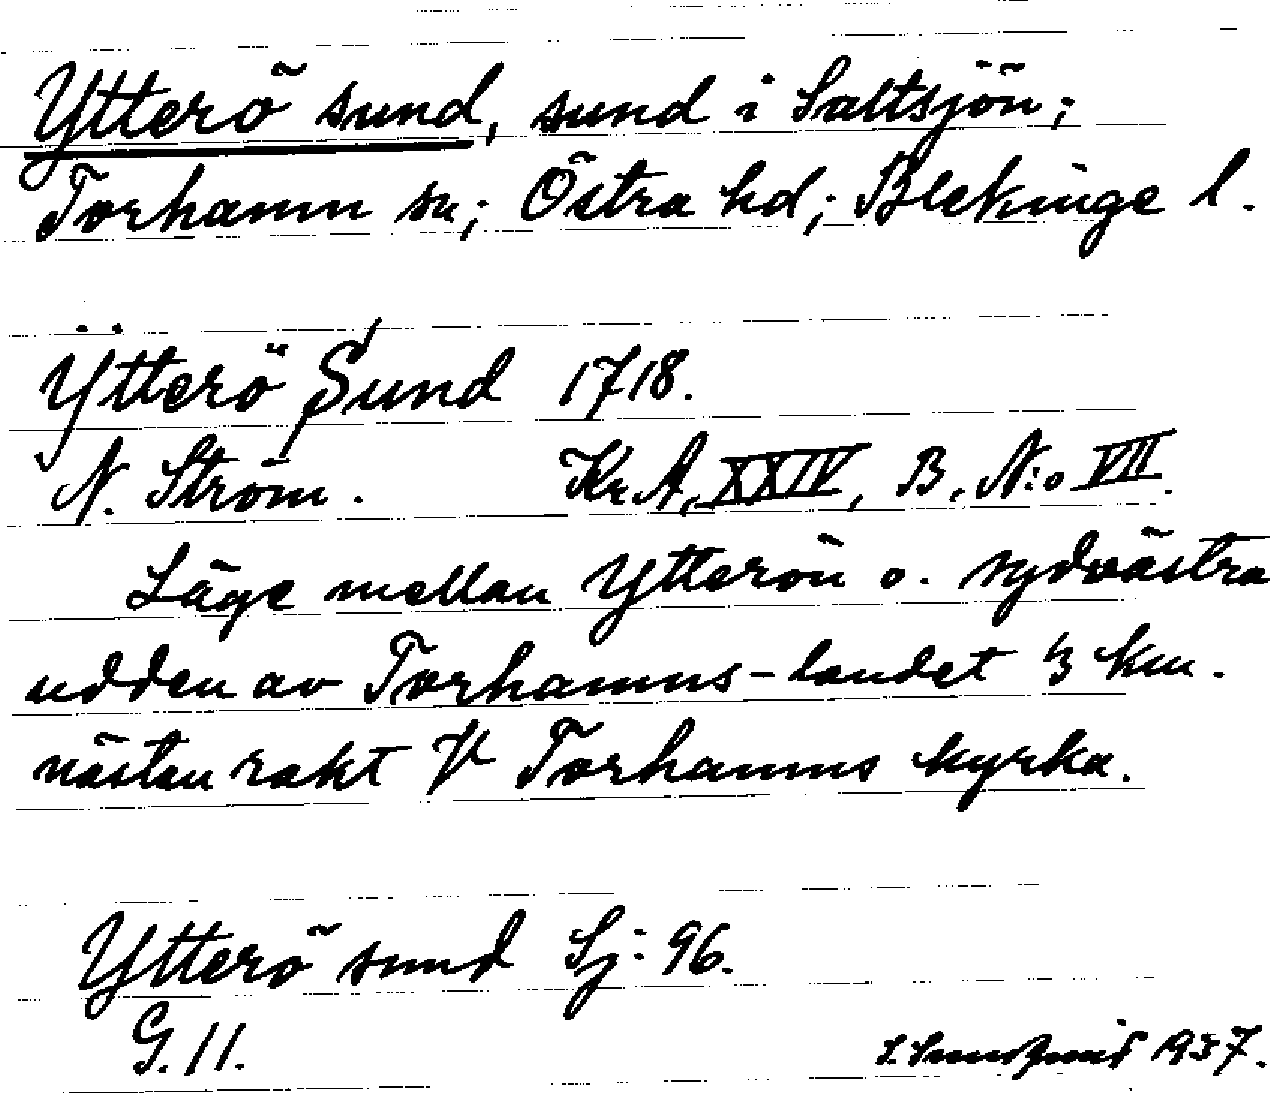 Ytterö sund, sund i Saltsjön;
Torhamn sn; Östra hd; Blekinge l.
Ÿtterö Sund 1718.
N. Ström. Kr A, XXIV, B, N:o VII.
Läge mellan Ytterön o. sydvästra
udden av Torhamns-landet 3 km.
nästan rakt V Torhamns kyrka.
Ytterö sund Sj: 96.
G. 11.
1937.